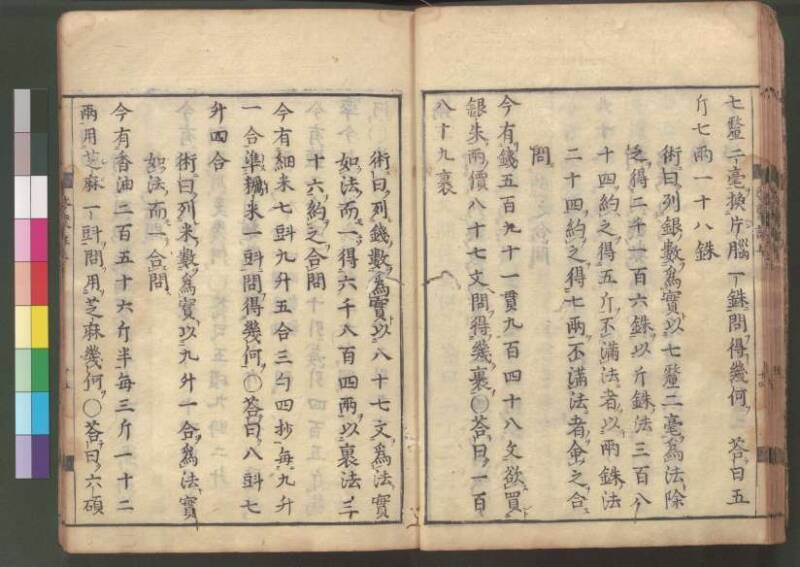 七釐二毫換片腦一銖問得幾何 荅曰五
斤七兩一十八銖
術曰列銀數爲實以七釐二毫爲法除
之得二千一百六銖以斤銖法三百八
十四約之得五斤不滿法者以兩銖法
二十四約之得七兩不滿法者命之合
問
今有錢五百九十一貫九百四十八文欲買
銀朱兩價八十七文問得幾裹〇荅曰一百
八十九裹
術曰列錢數爲實以八十七文爲法實
如法而一得六千八百四兩以裹法三
十六約之合問
今有細米七㪷九升五合三勺四抄每九升
一合準糯米一㪷問得幾何〇荅曰八㪷七
升四合
術曰列米數爲實以九升一合爲法實
如法而一合問
今有香油二百五十六斤半每三斤一十二
兩用芝麻一㪷問用芝麻幾何〇荅曰六碩